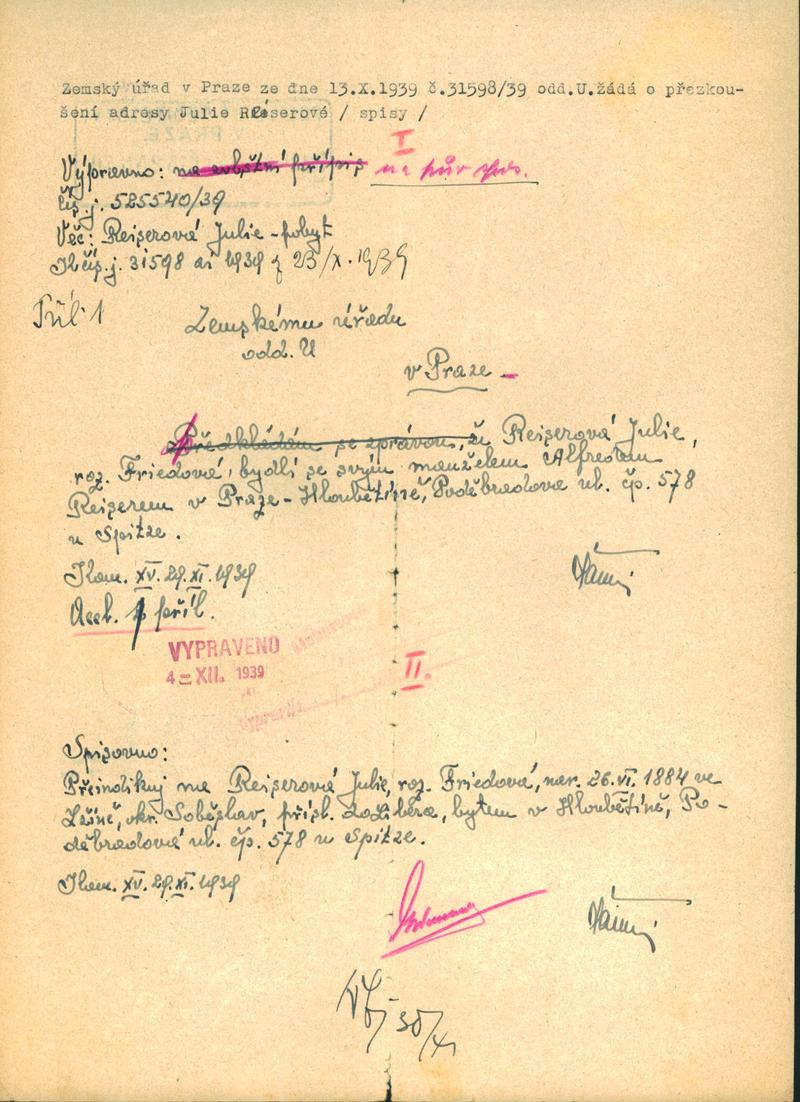 Zemský úřad v Praze ze dne 13.X.1939 č.31598/39 odd.U.žádá o přezkou-
šení adresy Julie Reiserové / spisy /
I
Výpravno: na zvláštní přípis na pův. spis.
čís. j. 525540/39
Věc: Reiserová Julie - pobyt
K čís. j. 31598 ai 1939 z 23/X. 1939
Příl. 1
Zemskému úřadu
odd. U
v Praze
Předkládám se zprávou, že Reiserová Julie,
roz. Friedová, bydlí se svým manželem Alfredem
Reiserem v Praze - Hloubětíně, Poděbradova ul. čp. 578
u Spitze.
Kom. XV. 29. XI. 1939
1 příl.
VYPRAVENO
4 - XII. 1939
II.
Spisovno:
Přeindikuj na Reiserová Julie, roz. Friedová, nar. 26. VI. 1884 ve
okr. Soběslav, přísl. do bytem v Hloubětíně, Po-
děbradova ul. čp. 578 u Spitze.
Kom. XV. 29. XI. 1939
30/XI